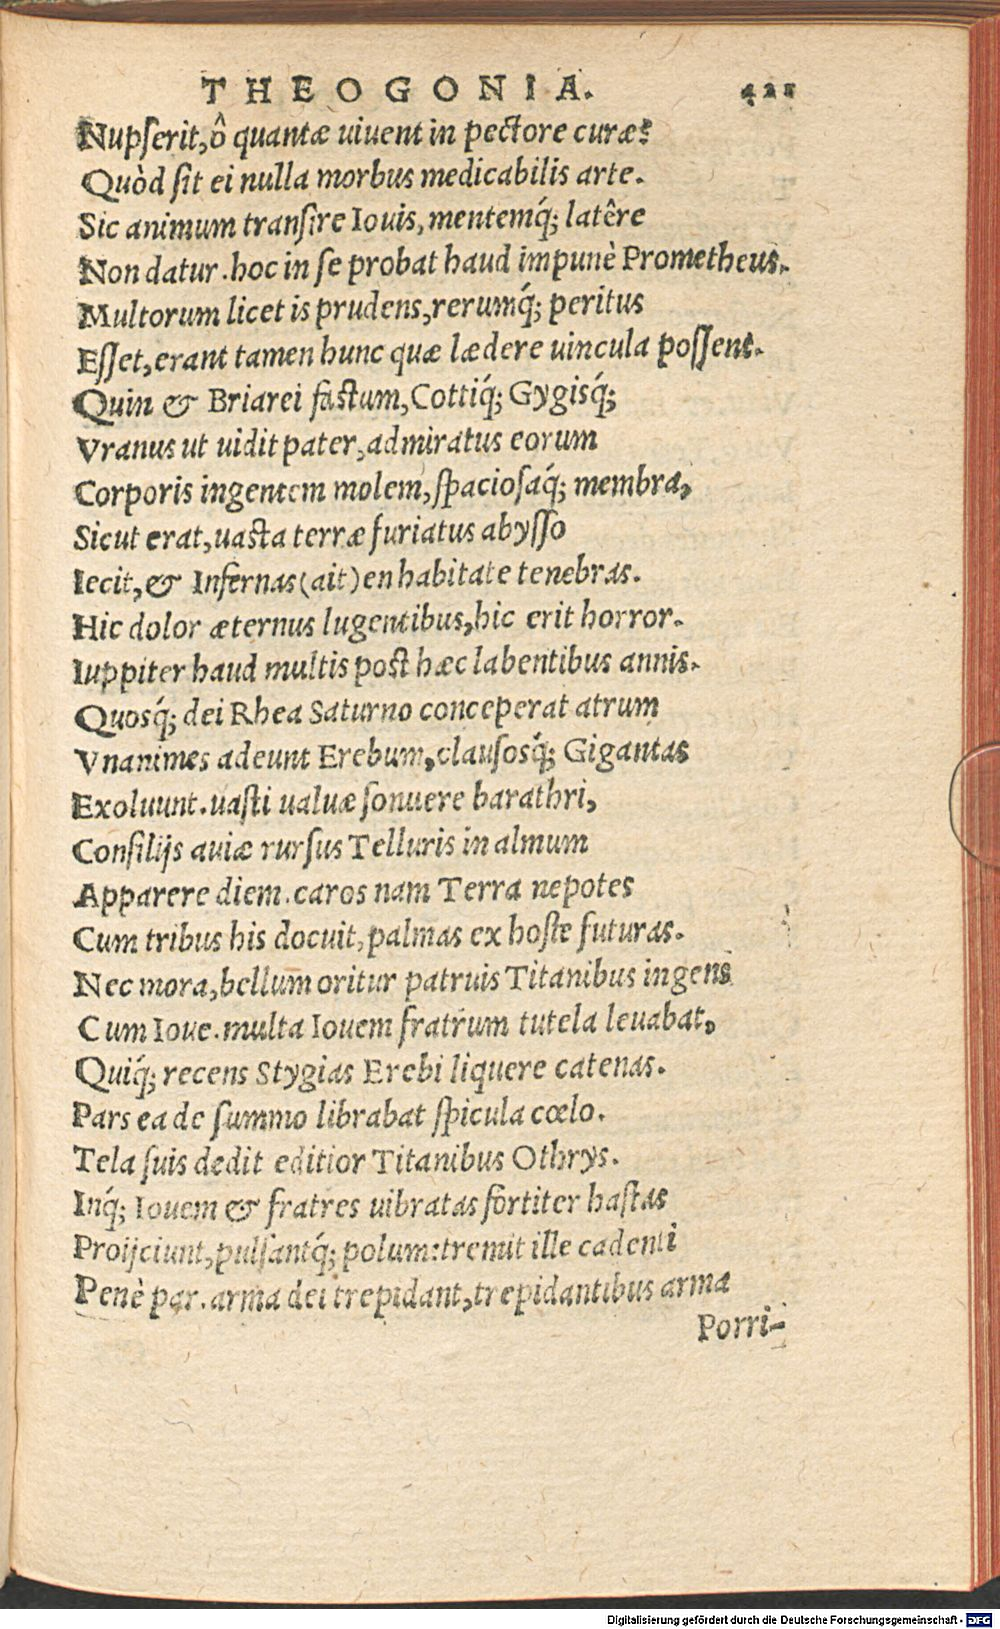 THEOGONIA. 421
Nupſerit, ô quantæ uiuent in pectore curæ?
Quòd ſit ei nulla morbus medicabilis arte.
Sic animum tranſire Iouis, mentemq́; latêre
Non datur. hoc in ſe probat haud impunè Prometheus.
Multorum licet is prudens, rerumq́; peritus
Eſſet, erant tamen hunc quæ lædere uincula poſſent.
Quin & Briarei faſtum, Cottiq́; Gygisq́;
Vranus ut uidit pater, admiratus eorum
Corporis ingentem molem, ſpacioſaq́; membra,
Sicut erat, uaſta terræ furiatus abyſſo
Iecit, & Infernas (ait) en habitate tenebras.
Hic dolor æternus lugentibus, hic erit horror.
Iuppiter haud multis poſt hæc labentibus annis.
Quosq́; dei Rhea Saturno conceperat atrum
Vnanimes adeunt Erebum, clauſosq́; Gigantas
Exoluunt. uaſti ualuæ ſonuere barathri,
Conſilijs auiæ rurſus Telluris in almum
Apparere diem. caros nam Terra nepotes
Cum tribus his docuit, palmas ex hoſte futuras.
Nec mora, bellum oritur patruis Titanibus ingens
Cum Ioue. multa Iouem fratrum tutela leuabat,
Quiq́; recens Stygias Erebi liquere catenas.
Pars ea de ſummo librabat ſpicula cœlo.
Tela ſuis dedit editior Titanibus Othrys.
Inq́; Iouem & fratres uibratas fortiter haſtas
Proijciunt, pulſantq́; polum: tremit ille cadenti
Penè par. arma dei trepidant, trepidantibus arma
Porri-
Digitalisierung gefördert durch die Deutsche Forschungsgemeinschaft - DFG